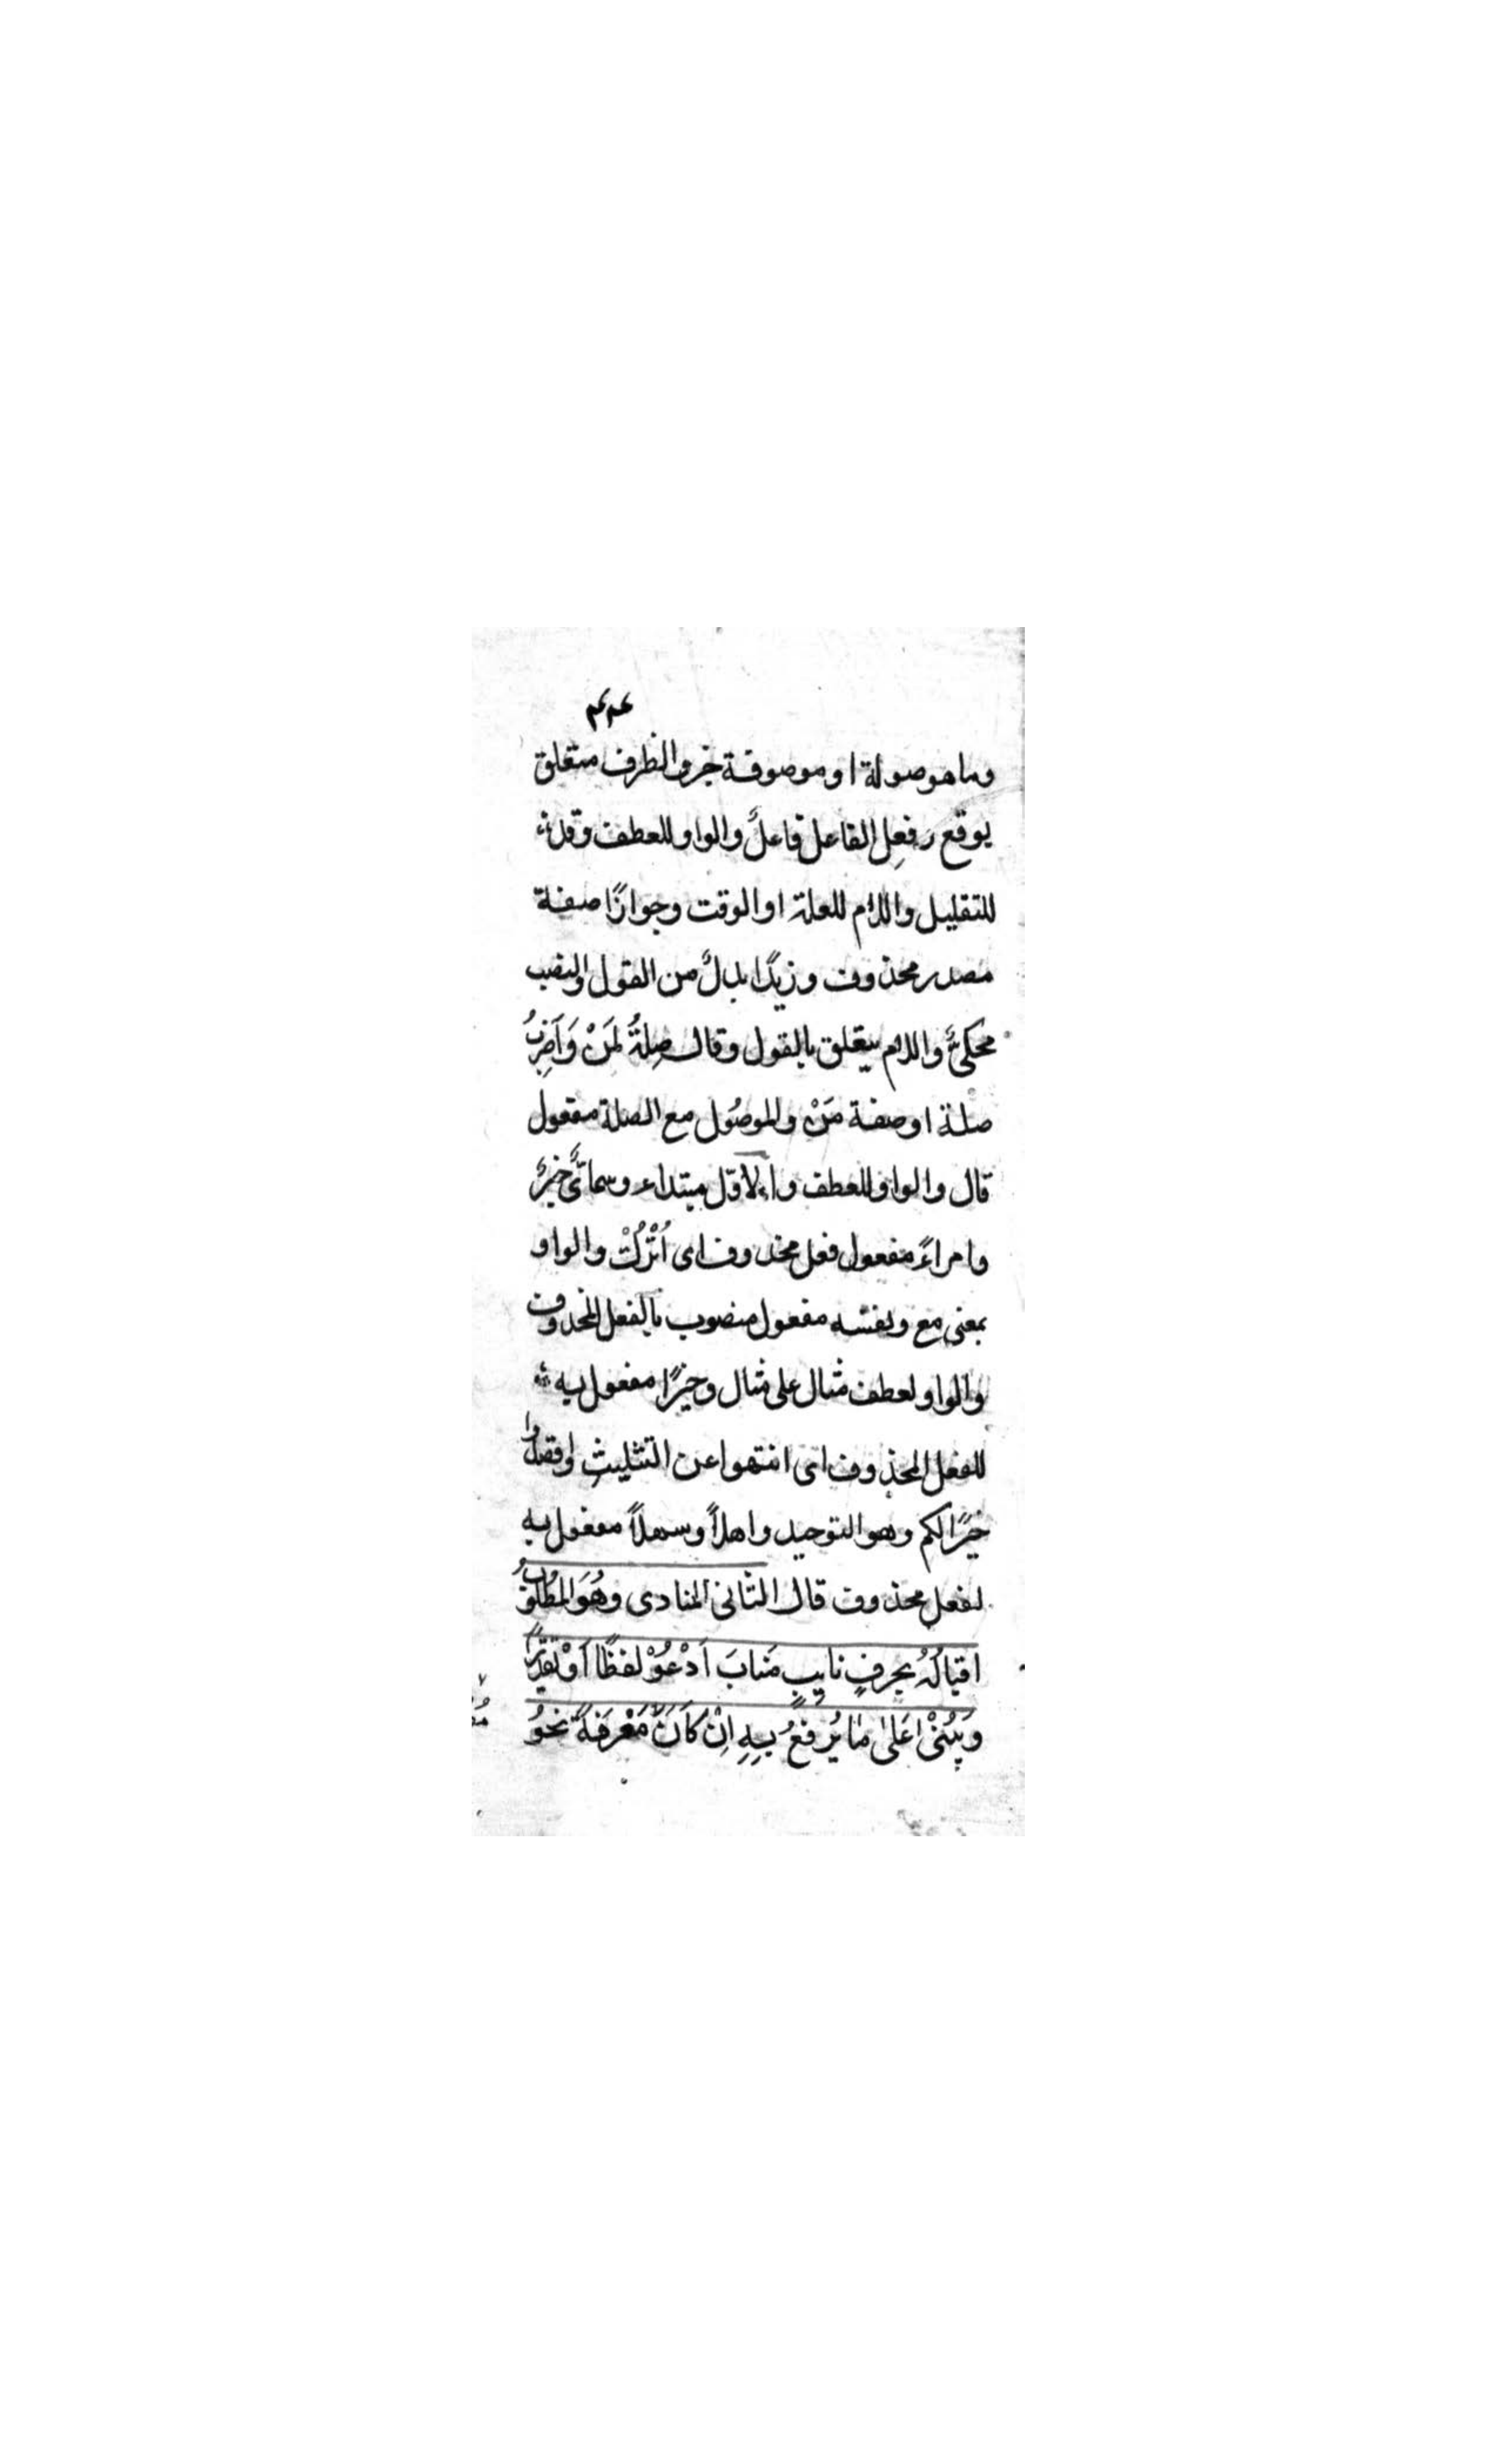 وما موصولة او موصوفة خبر والظرف متعلق
يوقع وفعل الفاعل فاعلٌ والواو للعطف وقد
للتقليل واللام للعلة او الوقت وجوازًا صفة
مصدر محذوف وزيدًا بدلٌ من القول والنصب
محكيٌّ واللام يتعلق بالقول وقال صِلةٌ لِمَنْ وَاَضرِبُ
صلة او صفة مَنْ والموصُول مع الصلة مفعول
قال والواو للعطف والاوّل مبتداء وسماعيٌّ خبرٌ
وامراءً مفعول فعل محذوف اى اُتْرُكْ والواو
بمعنى مع ونفسَه مفعول منصوب بالفعل المحذوف
والواو لعطف مثال على مثال وخيرًا مفعول به
للفعل المحذوف اى انتهوا عن التثليثِ واقصدوا
خيرًا لكم وهو التوحيد واهلاً وسهلاً مفعول به
لفعل محذوف قال الثانى المنادى وهُوَ المطلوبُ
اقبالُهُ بحرفٍ نايبٍ مَنابَ اَدْعُوْ لفظًا اَوْ تقديرًا
وَيُبْنٰى عَلٰى مَا يُرْفَعُ بِهِ اِنْ كَانَ مَعْرِفَةً نحوُ